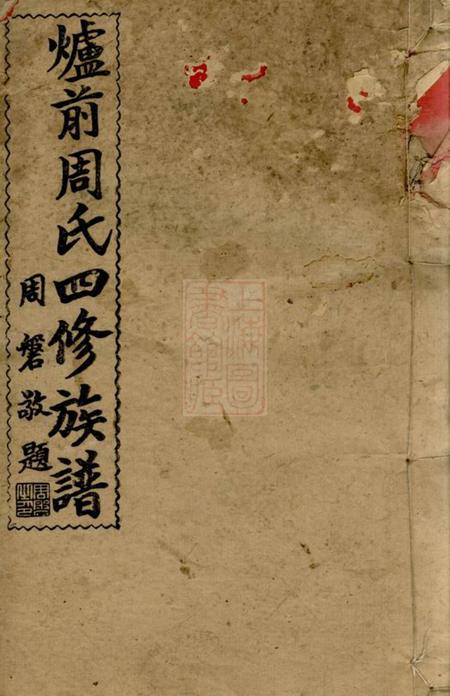 爐前周氏四修族譜
周磐敬題
周磐之印
上海圖書館藏